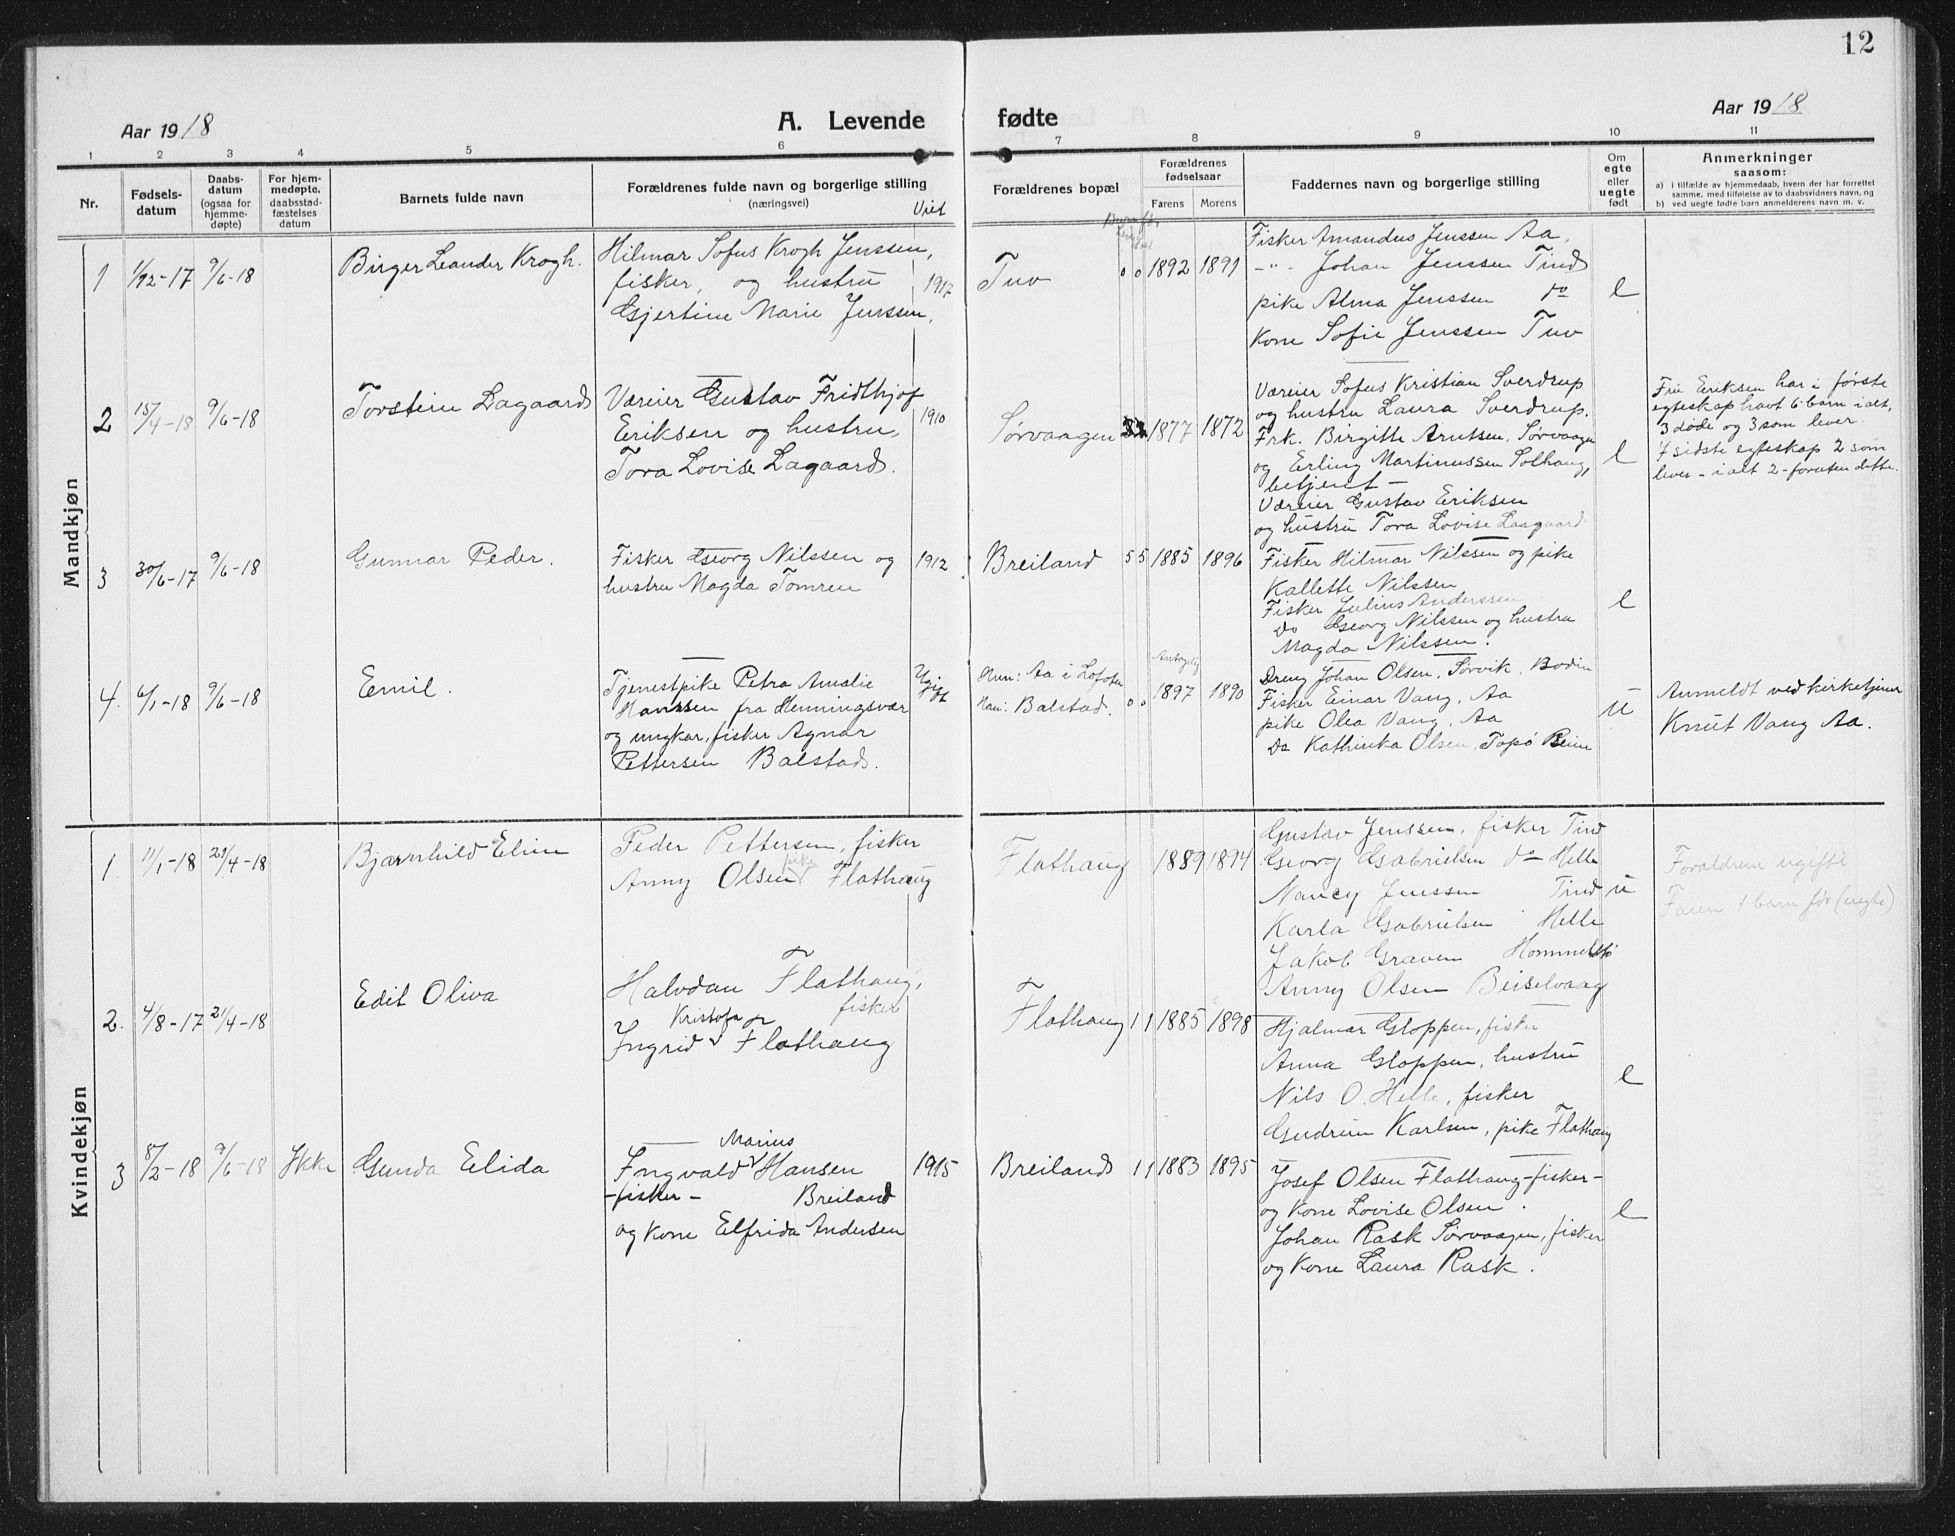 12
Aar 1918
A. Levende fødte
Aar 1918
1 2 3 4 5 6 7 8 9 10 11
Nr.
Fødsels-
datum
Daabs-
datum
(ogsaa for
hjemme-
døpte)
For hjem-
medøpte,
daabsstad-
fæstelses
datum
Barnets fulde navn
Forældrenes fulde navn og borgerlige stilling
(næringsvei)
Viet
Forældrenes bopæl
Forældrenes
fødselsaar
Farens Morens
Faddernes navn og borgerlige stilling
Om
egte
eller
uegte
født
Anmerkninger
saasom:
a) i tilfælde av hjemmedaab, hvem der har forrettet
samme, med tilføielse av to daabsvidners navn, og
b) ved uegte fødte barn anmelderens navn m. v.
Mandkjøn
1
1/12-17
9/6-18
Birger Leander Krogh.
Hilmar Sofus Krogh Jenssen,
fisker, og hustru
Gjertine Marie Jenssen,
1917
Tuv
0 0
1892
1891
Fisker Amandus Jenssen Aa,
-"- Johan Jenssen Tind
pike Alma Jenssen do
Kone Sofie Jenssen Tuv
e
2
15/4-18
9/6-18
Torstein Lagaard
Væreier Gustav Fridthjof
Eriksen og hustru,
Tora Lovise Lagaard.
1910
Sørvaagen
1877
1872
Væreier Sofus Kristian Sverdrup
og hustru Laura Sverdrup.
Frk. Birgitte Arntsen, Sørvaagen
og Erling Martinussen Solhaug,
betjent -
Væreier Gustav Eriksen
og hustru Tora Lovise Laagaard
e
Fru Eriksen har i første
egteskap havt 6 barn i alt,
3 døde og 3 som lever.
I sidste egteskap 2 som
lever - i alt 2 - foruten dette.
3
30/6-17
9/6-18
Gunnar Peder.
Fisker Georg Nilssen og
hustru Magda Tomren
1912
Breiland
5 5
1885
1896
Fisker Hilmar Nilssen og pike
Kallette Nilssen
Fisker Julius Anderssen
Do Georg Nilssen og hustru
Magda Nilssen.
e
4.
6/1-18
9/6-18
Emil.
Tjenestpike Petra Amalie
Hanssen fra Henningsvær
og ungkar, fisker Agnar
Pettersen Balstad.
Ugift
Hun: Aa i Lofoten
Han: Balstad.
0 0
Antagelig
1897
1890
Dreng Johan Olsen, Sørvik, Bodin
Fisker Einar Vang, Aa
pike Olea Vang, Aa
Do Kathinka Olsen, Topø
u
Anmeldt ved kirketjener
Knut Vang Aa.
Kvindekjøn
1.
11/1-18
21/4-18
Bjarnhild Elin
Peder Pettersen, fisker
pike
Anny Olsen Flathaug
Flathaug
1889
1894
Gustav Jenssen, fisker Tind
Georg Gabrielsen do Helle
Nancy Jenssen Tind
Karla Gabrielsen Helle
Jakob Graven
Anny Olsen
u
Forældrene ugifte
Faren 1 barn før (uegte)
2.
4/8-17
21/4-18
Edit Oliva
Halvdan Flathaug,
fisker
Kristofa
Ingrid Flathaug
Flathaug
1 1
1885
1898
Hjalmar Gloppen, fisker
Anna Gloppen, hustru
Nils O. Helle, fisker
Gudrun Karlsen, pike Flathaug
e
3
8/2-18
9/6-18
Ikke
Gunda Elida
Marius
Ingvald Hansen
-fisker- Breiland
og kone Elfrida Andersen
1915
Breiland
1 1
1883
1895
Josef Olsen Flathaug-fisker-
og kone Lovise Olsen.
Johan Rask Sørvaagen, fisker
og kone Laura Rask.
e